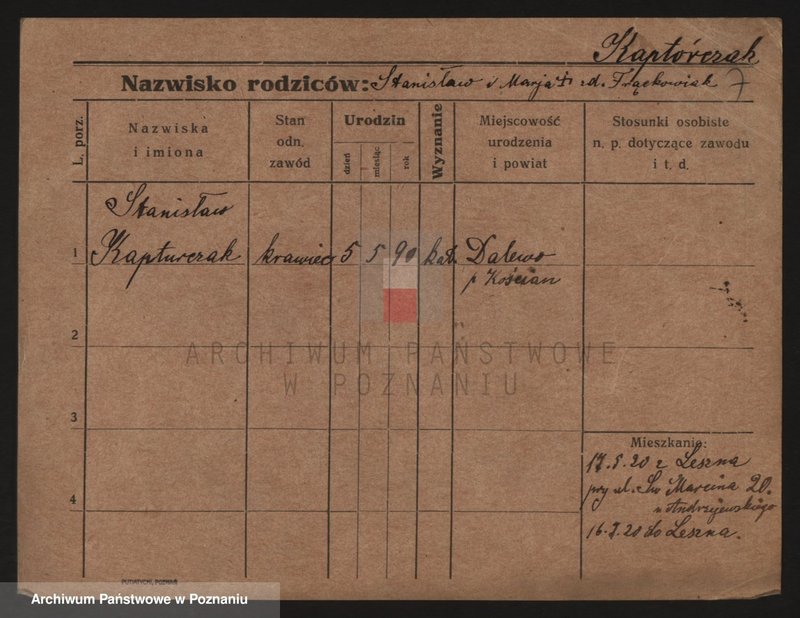 Kaptórczak
Nazwisko rodziców: Stanisław i Marja + z d. Frąckowiak 7
L. porz.
Nazwiska
i imiona
Stan
odn.
zawód
Urodzin
dzień
miesiąc
rok
Wyznanie
Miejscowość
urodzenia
i powiat
Stosunki osobiste
n. p. dotyczące zawodu
i t. d.
Stanisław
1 Kapturczak krawiec 5 5 90 kat. Dalewo
p Kościan
2
ARCHIWUM PAŃSTWOWE
W POZNANIU
3
Mieszkanie:
17.5.20 z Leszna
przy ul. Św Marcina 20.
4
u Andrzejewskiego
16.7.20 do Leszna.
PUTIATYCKI, POZNAŃ
Archiwum Państwowe w Poznaniu